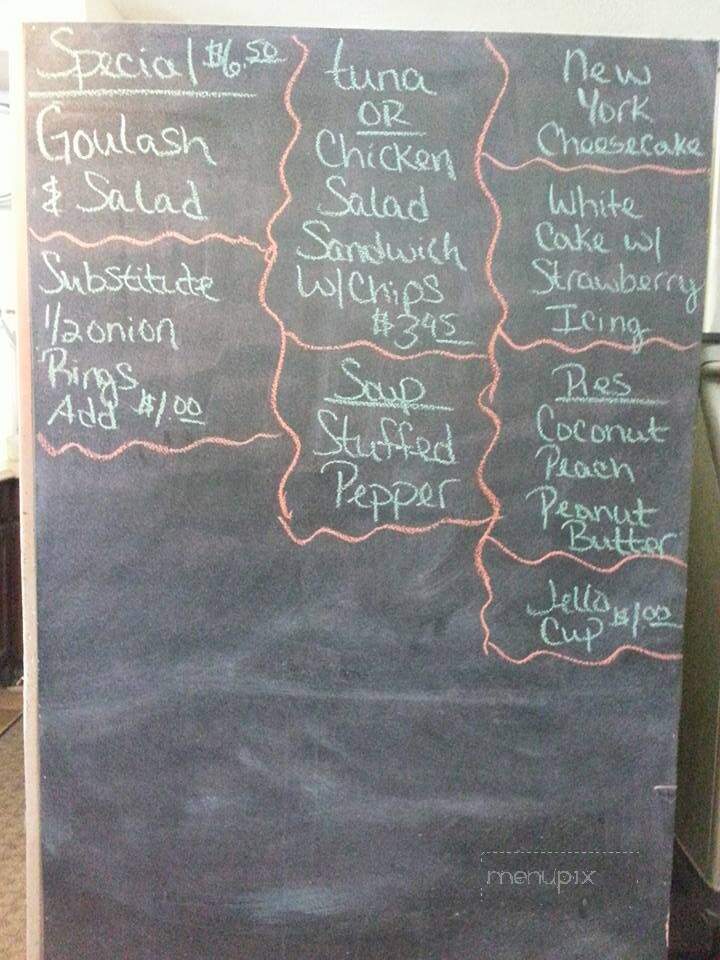 Special $6.50
Goulash
& Salad
Substitute
1/2 onion
Rings
Add $1.00
tuna
OR
Chicken
Salad
Sandwich
W/Chips
$3.95
Soup
Stuffed
Pepper
New
York
Cheesecake
White
Cake w/
Strawberry
Icing
Pies
Coconut
Peach
Peanut
Butter
Jello $1.00
Cup
menupix